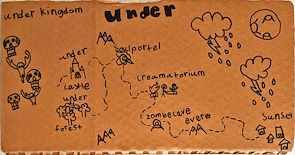 under kingdom
under
under
castle
soulportel
creamatorium
under
forest
zombecave
ever
Sunset